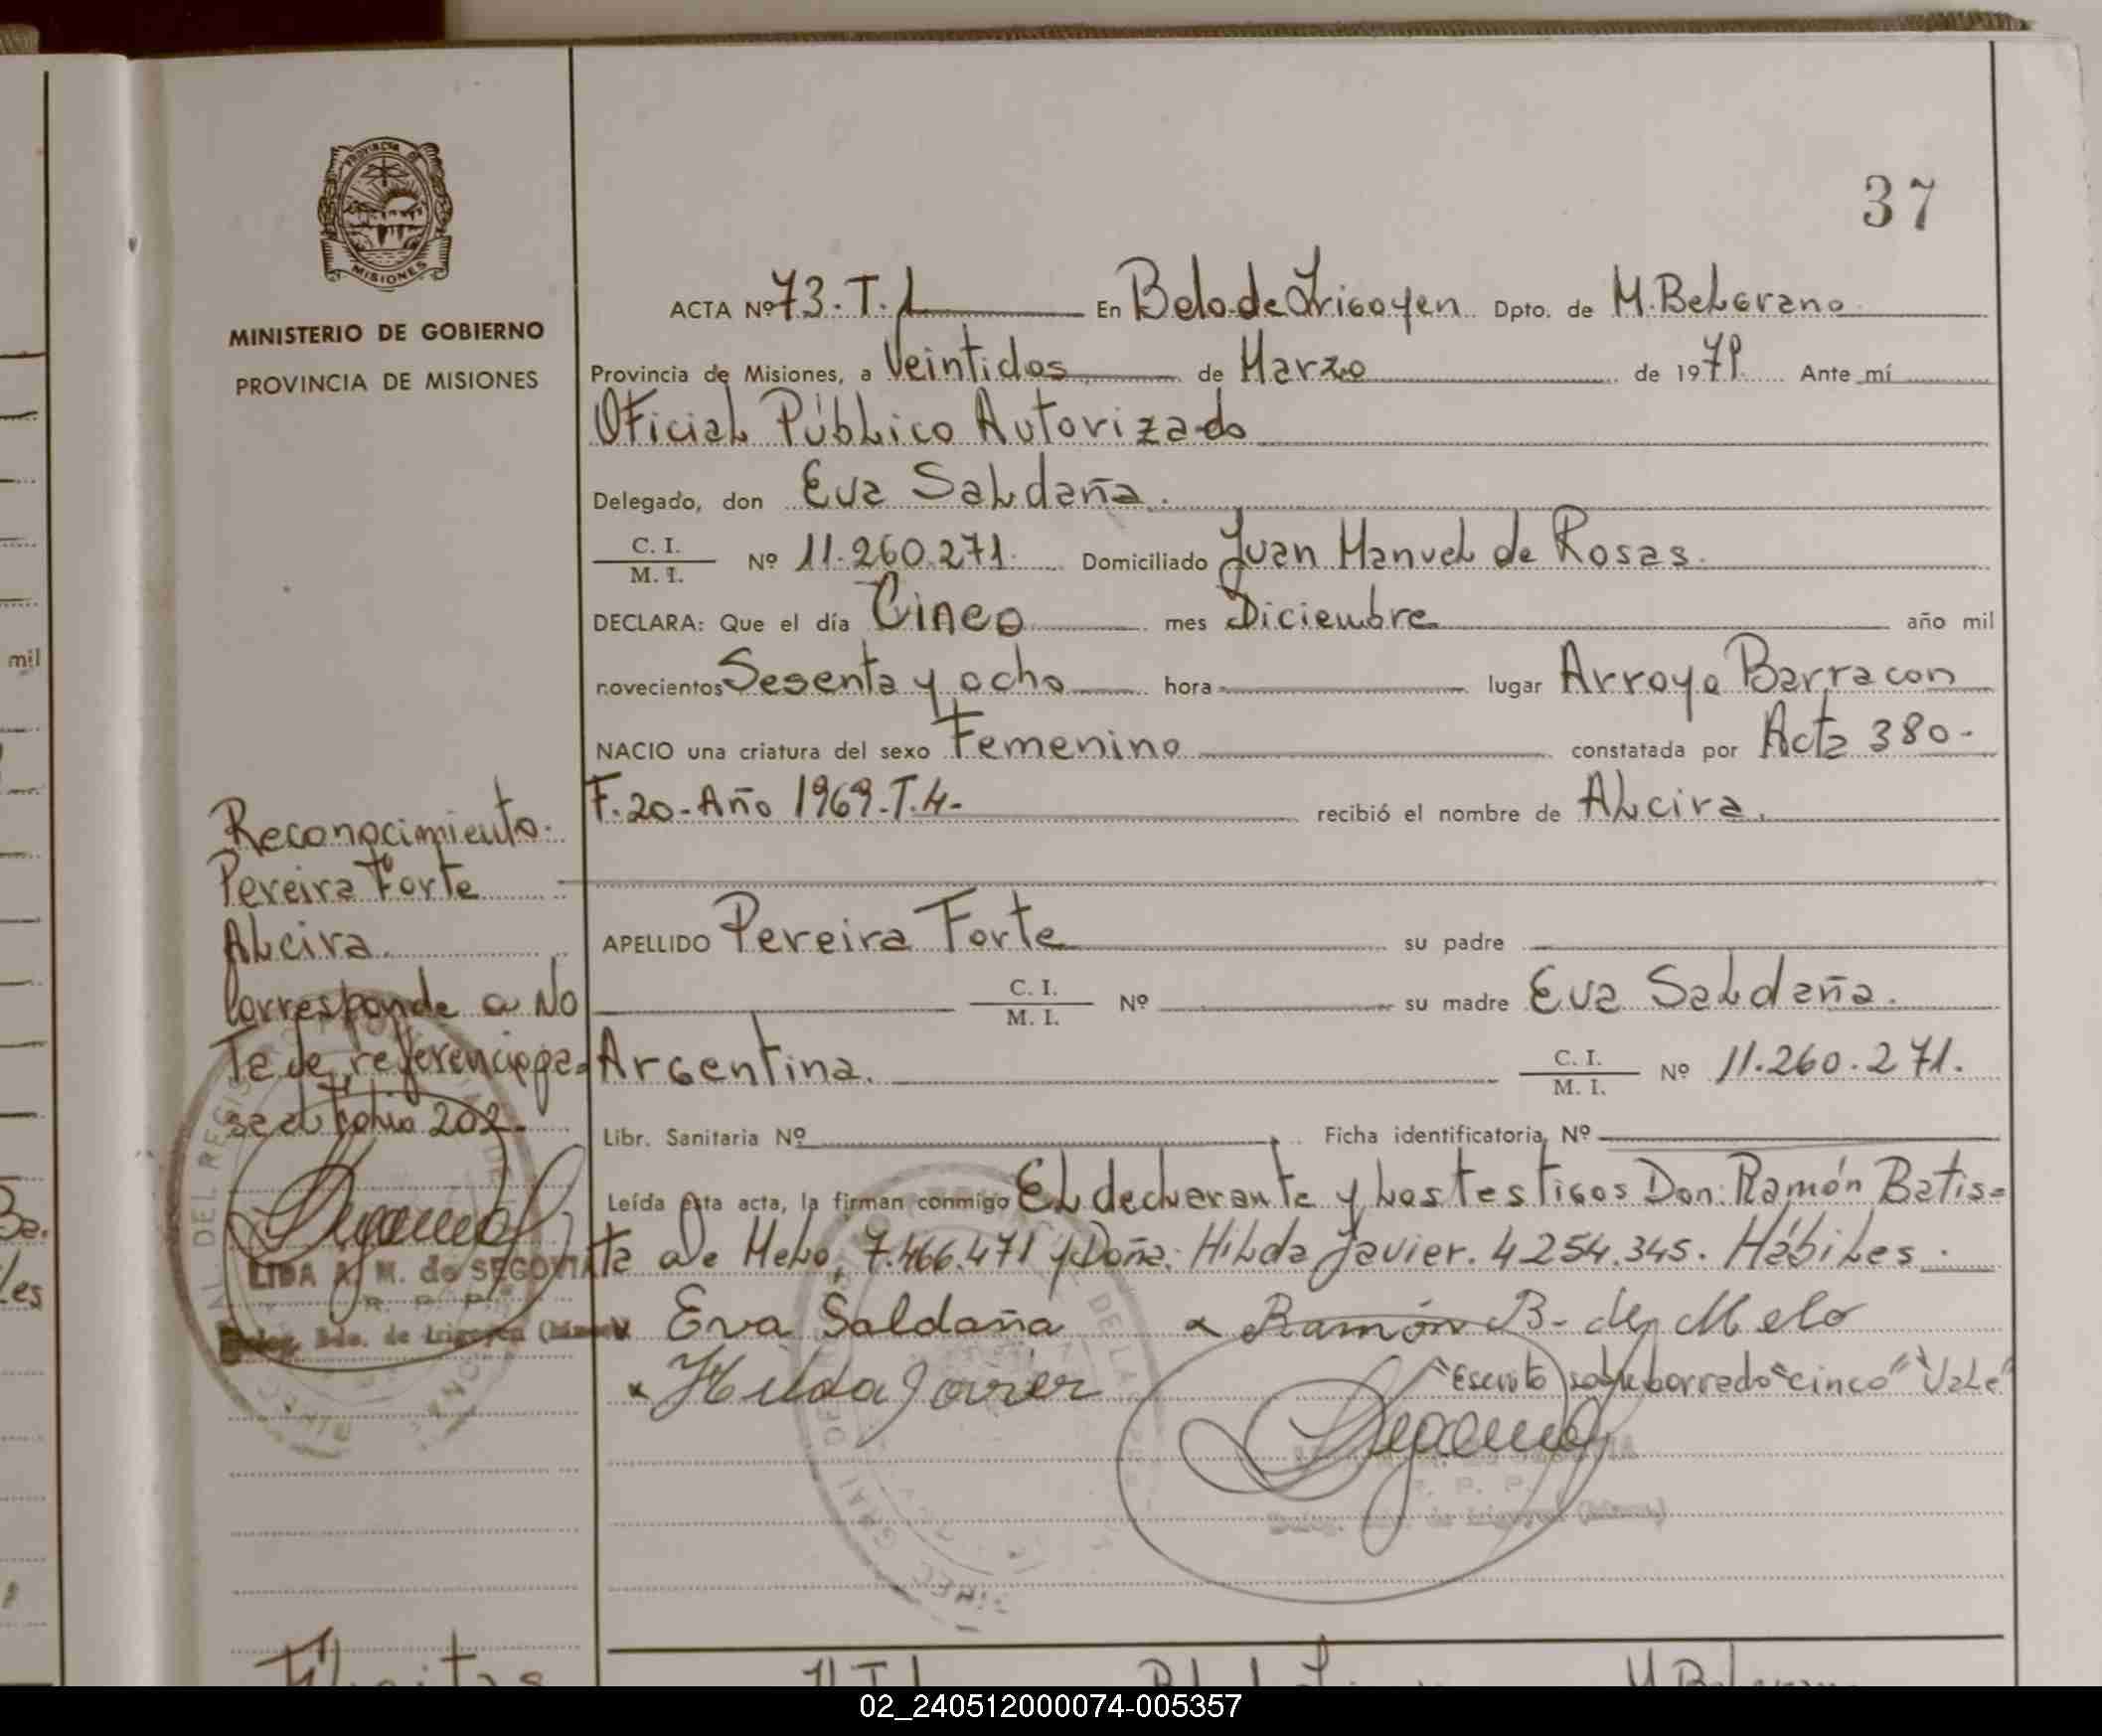 37
PROVINCIA DE
MISIONES
MINISTERIO DE GOBIERNO
PROVINCIA DE MISIONES
ACTA Nº 73.T.1 En Bdo de Irigoyen Dpto. de M. Belgrano
Provincia de Misiones, a Veintidos de Marzo de 1979 Ante mí
Oficial Público Autorizado
Delegado, don Eva Saldaña.
C. I.
M. I.
Nº 11.260.271. Domiciliado Juan Manuel de Rosas.
DECLARA: Que el día Cinco mes Diciembre año mil
novecientos Sesenta y ocho hora lugar Arroyo Barracon
NACIO una criatura del sexo Femenino constatada por Acta 380-
F.20-Año 1969.T.4- recibió el nombre de Alcira.
APELLIDO Pereira Forte su padre
C. I.
M. I.
Nº su madre Eva Saldaña.
Argentina.
C. I.
M. I.
Nº 11.260.271.
Libr. Sanitaria Nº Ficha identificatoria Nº
Leída esta acta, la firman conmigo El declarante y los testigos Don: Ramón Batis=
ta De Melo, 7.466.471 y Doña: Hilda Javier. 4254.345. Hábiles.
x Eva Saldaña x Ramón B. de Melo
x Hilda Javier "Escrito sobre borrado "cinco" "Vale"
Reconocimiento.
Pereira Forte
Alcira.
Corresponde a No
Ta de referencia pa=
se al folio 202.
LIDA A. M. de SEGOVIA
R. P. P.
Deleg. Bdo. de Irigoyen
mil
les
02_240512000074-005357